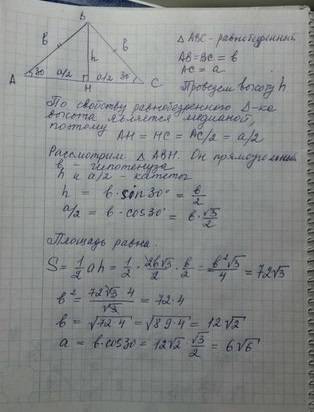 B
b b
h
A 30 a/2 a/2 30 C
H
△ ABC - равнобедренный
AB = BC = b
AC = a
Проведем высоту h
По свойству равнобедренного Δ-ка
высота является медианой,
поэтому
AH = HC = AC/2 = a/2
Рассмотрим △ ABH. Он прямоугольный
b - гипотенуза
h и a/2 - катеты
h = b·sin30° = b/2
a/2 = b·cos30° = b·√3/2
Площадь равна
S = 1/2 ah = 1/2 · 2b√3/2 · b/2 = b²√3/4 = 72√3
b² = 72√3·4/√3 = 72·4
b = √72·4 = √8·9·4 = 12√2
a = b·cos30 = 12√2 · √3/2 = 6√6